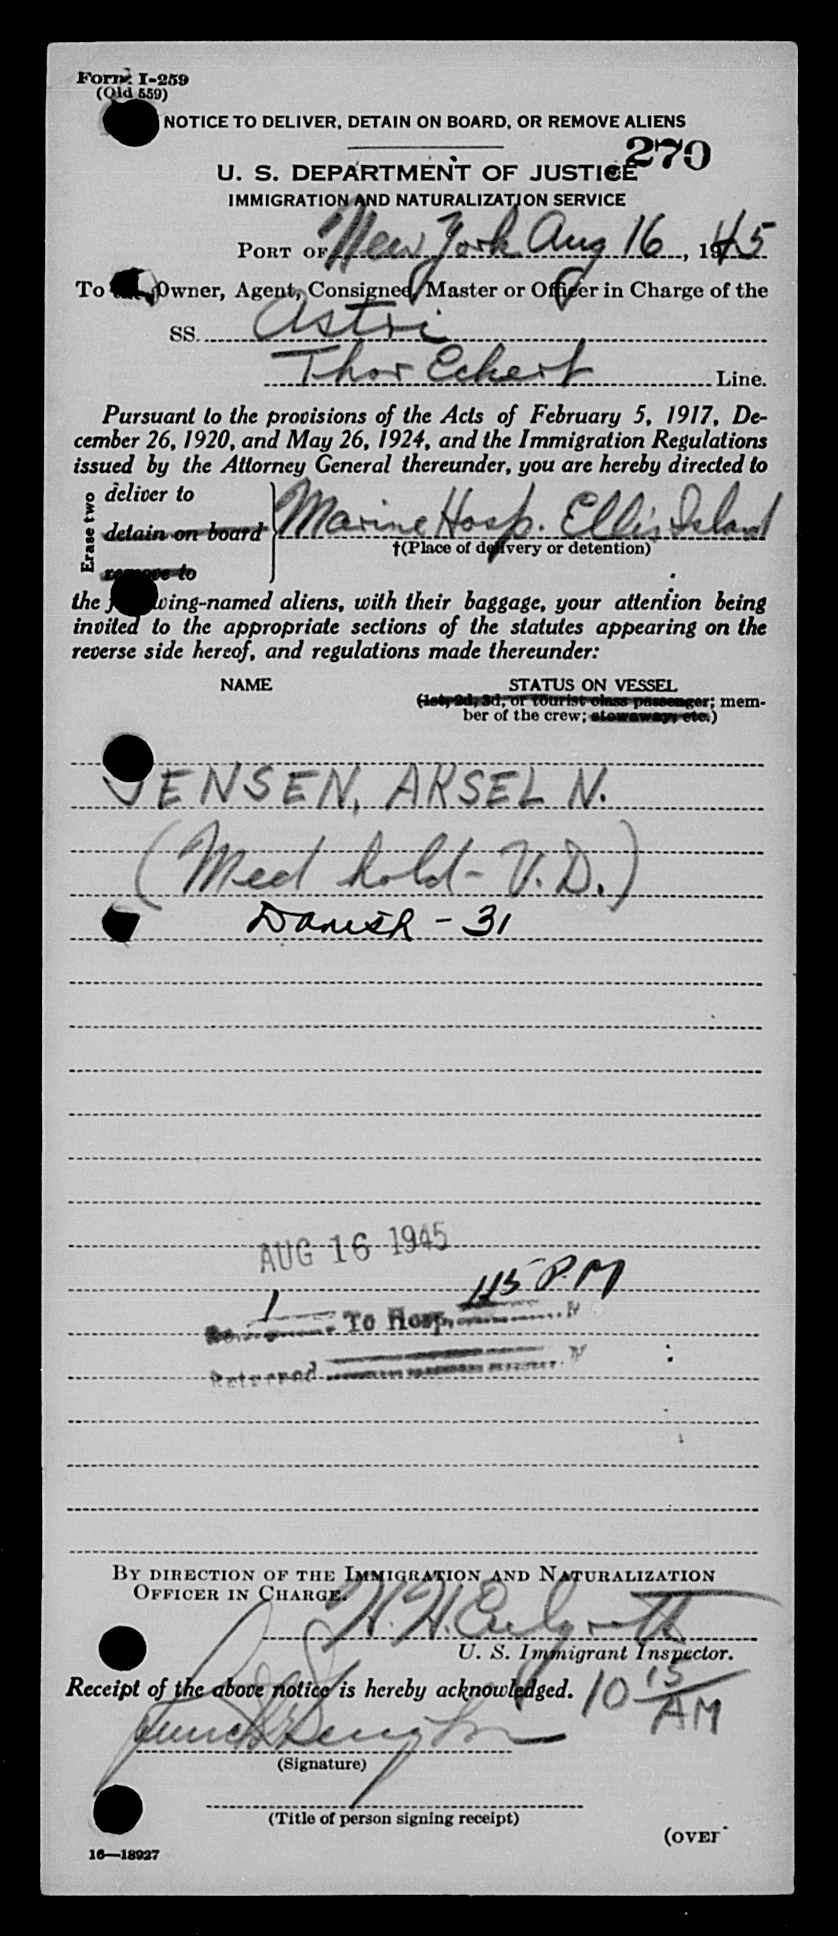 Form I-259
(Old 559)
NOTICE TO DELIVER, DETAIN ON BOARD, OR REMOVE ALIENS
270
U. S. DEPARTMENT OF JUSTICE
IMMIGRATION AND NATURALIZATION SERVICE
PORT OF New York Aug 16, 1945
To Owner, Agent, Consignee, Master or Officer in Charge of the
SS. Astri
Thor Eckert Line.
Pursuant to the provisions of the Acts of February 5, 1917, De-
cember 26, 1920, and May 26, 1924, and the Immigration Regulations
issued by the Attorney General thereunder, you are hereby directed to
Erase two
deliver to
detain on board
remove to
Marine Hosp. Ellis Island
†(Place of delivery or detention)
the following-named aliens, with their baggage, your attention being
invited to the appropriate sections of the statutes appearing on the
reverse side hereof, and regulations made thereunder:
NAME STATUS ON VESSEL
(1st, 2d, 3d, or tourist class passenger; mem-
ber of the crew; stowaway, etc.)
JENSEN, AKSEL N.
(Med hold - V.D.)
Danish - 31
AUG 16 1945
1 To Hosp. 115 P.M
Returned M
BY DIRECTION OF THE IMMIGRATION AND NATURALIZATION
OFFICER IN CHARGE.
U. S. Immigrant Inspector.
Receipt of the above notice is hereby acknowledged. 10 15 AM
(Signature)
(Title of person signing receipt)
(OVER
16—18927